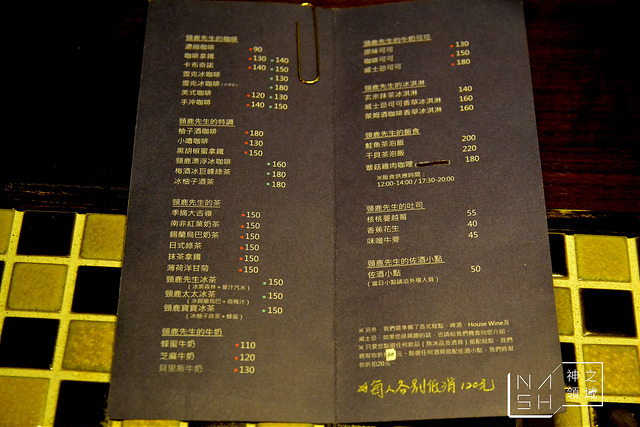 頸鹿先生的咖啡
濃縮咖啡 90
咖啡拿鐵 130 140
卡布奇諾 140 150
雪克冰咖啡 130
雪克冰咖啡 180
美式咖啡 120 130
手沖咖啡 140 150
頸鹿先生的特調
柚子酒咖啡 180
小嚕咖啡 130
黑胡椒蜜拿鐵 150
頸鹿漂浮冰咖啡 160
梅酒冰巨蜂綠茶 180
冰柚子酒茶 180
頸鹿先生的茶
季摘大吉嶺 150
南非紅葉奶茶 150
錫蘭烏巴奶茶 150
日式綠茶 150
抹茶拿鐵 150
薄荷洋甘菊 150
頸鹿先生冰茶 150
(冰黑森林+薑汁汽水)
頸鹿太太冰茶 150
(冰錫蘭烏巴+烏梅汁)
頸鹿寶寶冰茶 150
(冰柚子綠茶+蜂蜜)
頸鹿先生的牛奶
蜂蜜牛奶 110
芝麻牛奶 120
貝里斯牛奶 130
頸鹿先生的牛奶可可
原味可可 130
咖啡可可 150
威士忌可可 180
頸鹿先生的冰淇淋
玄米抹茶冰淇淋 140
威士忌可可香草冰淇淋 160
萊姆酒咖啡香草冰淇淋 160
頸鹿先生的飯食
鮭魚茶泡飯 200
干貝茶泡飯 220
蘑菇雞肉咖哩 180
※飯食供應時間:
12:00-14:00 / 17:30-20:00
頸鹿先生的吐司
核桃蔓越莓 55
香蕉花生 40
味噌牛蒡 45
頸鹿先生的佐酒小點
佐酒小點 50
(當日小點請洽外場人員)
※另外,我們還準備了各式糕點、啤酒、House Wine及
威士忌,如果您感興趣的話,也請給我們機會向您介紹。
※只要您點選任何飲品(除冰品及酒類)搭配糕點,我們
將幫你折 元,點選任何酒類搭配佐酒小點,我們將幫
你折扣20元。
※每人各別低消120元
NASH
神之領域